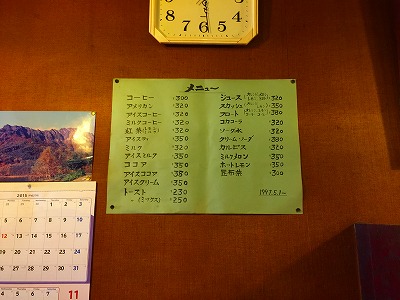 メニュー
コーヒー ¥300
アメリカン ¥320
アイスコーヒー ¥320
ミルクコーヒー ¥320
紅茶 ¥320
アイスティ ¥350
ミルク ¥320
アイスミルク ¥350
ココア ¥350
アイスココア ¥350
アイスクリーム ¥350
トースト ¥230
〃 (ミックス) ¥250
ジュース ¥320
スカッシュ ¥350
フロート ¥380
コカコーラ ¥320
ソーダ水 ¥320
クリームソーダ ¥380
カルピス ¥320
ミルクメロン ¥350
ホットレモン ¥350
昆布茶 ¥300
1997.5.1~
2015
1 2 3
4 5 6 7 8 9 10
12 13 14 15 16 17
19 20 21 22 23 24
26 27 28 29 30 31
11